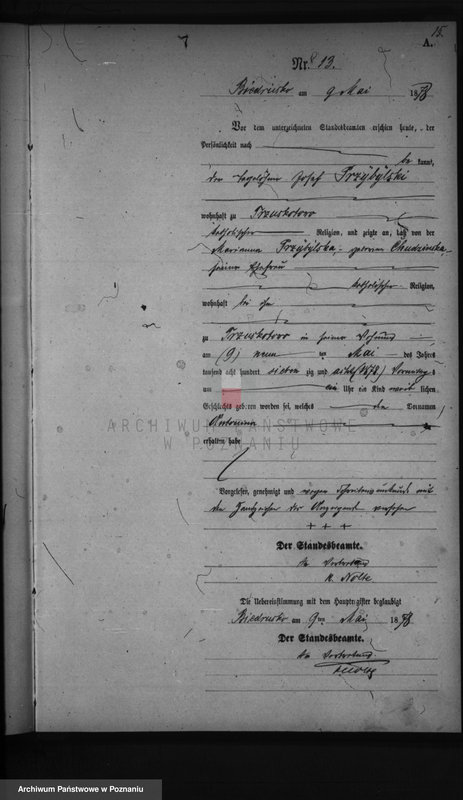 15.
A.
Nr. 13.
Biedrusko am 9 Mai 1878
Vor dem unterzeichneten Standesbeamten erschien heute, der
Persönlichkeit nach
be kannt,
den Tagelöhner Josef Przybylski
wohnhaft zu
katholischer Religion, und zeigte an, daß von der
Marianna Przybylska, geborenen Chudzinska,
seiner Ehefrau
katholischer Religion,
wohnhaft bei ihm
zu in seiner Wohnung
am (9) neun ten Mai des Jahres
tausend acht hundert sieben zig und acht (1878) Vormittags
um Uhr ein Kind weib lichen
Geschlechts geboren worden sei, welches den Vornamen
Antonina
erhalten habe
Vorgelesen, genehmigt und wegen Schreibensunkunde mit
den Handzeichen des Anzeigenden versehen
+ + +
Der Standesbeamte.
In Vertretung
K. Nolte
Die Uebereinstimmung mit dem Hauptregister beglaubigt
Biedrusko am 9ten Mai 1878
Der Standesbeamte.
In Vertretung
Nolte
ARCHIWUM PAŃSTWOWE
W POZNANIU
Archiwum Państwowe w Poznaniu